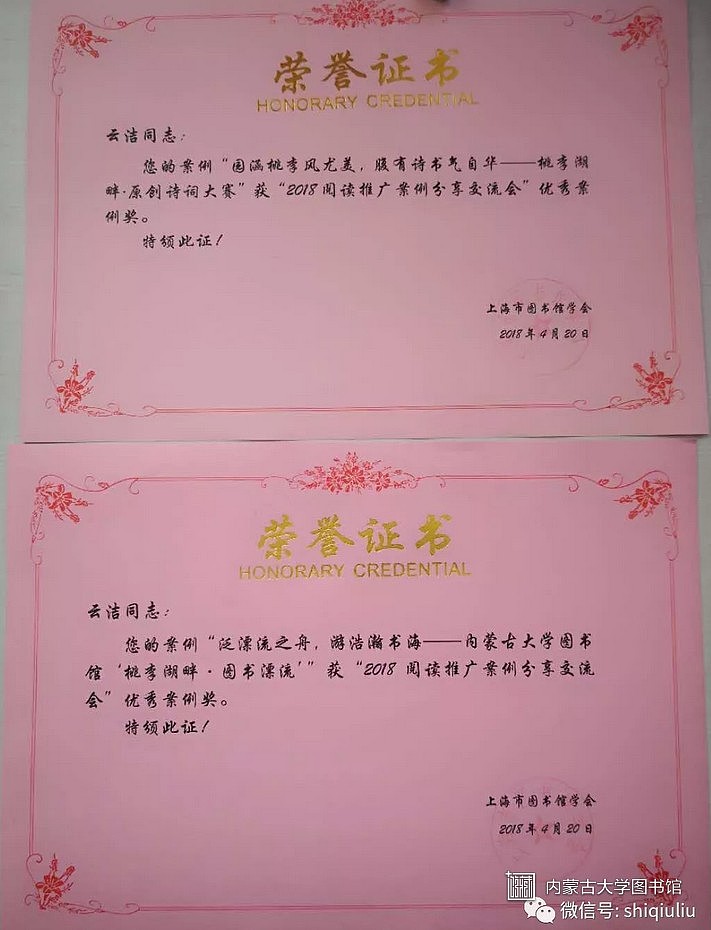 荣誉证书
HONORARY CREDENTIAL
云洁同志：
您的案例“园涵桃李风尤美，腹有诗书气自华——桃李湖
畔·原创诗词大赛”获“2018阅读推广案例分享交流会”优秀案
例奖。
特颁此证！
上海市图书馆学会
2018年4月20日
荣誉证书
HONORARY CREDENTIAL
云洁同志：
您的案例“泛漂流之舟，游浩瀚书海——内蒙古大学图书
馆‘桃李湖畔·图书漂流’”获“2018阅读推广案例分享交流
会”优秀案例奖。
特颁此证！
上海市图书馆学会
2018年4月20日
内蒙古大学图书馆
微信号: shiqiuliu